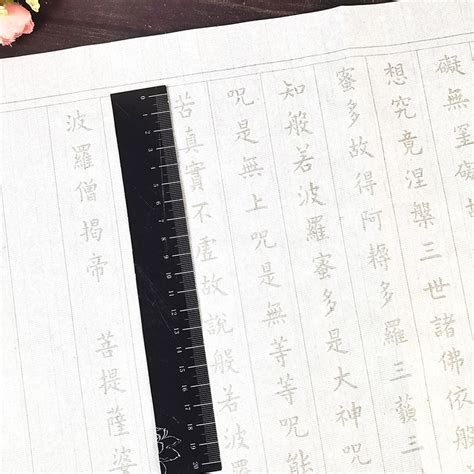 礙無罣礙
想究竟涅槃三世諸佛依般
蜜多故得阿耨多羅三藐三
知般若波羅蜜多是大神呪
呪是無上呪是無等等呪能
苦真實不虛故說般若波
波羅僧揭帝 菩提薩婆
0 1 2 3 4 5 6 7 8 9 10 11 12 13 14 15 16 17 18 19 20